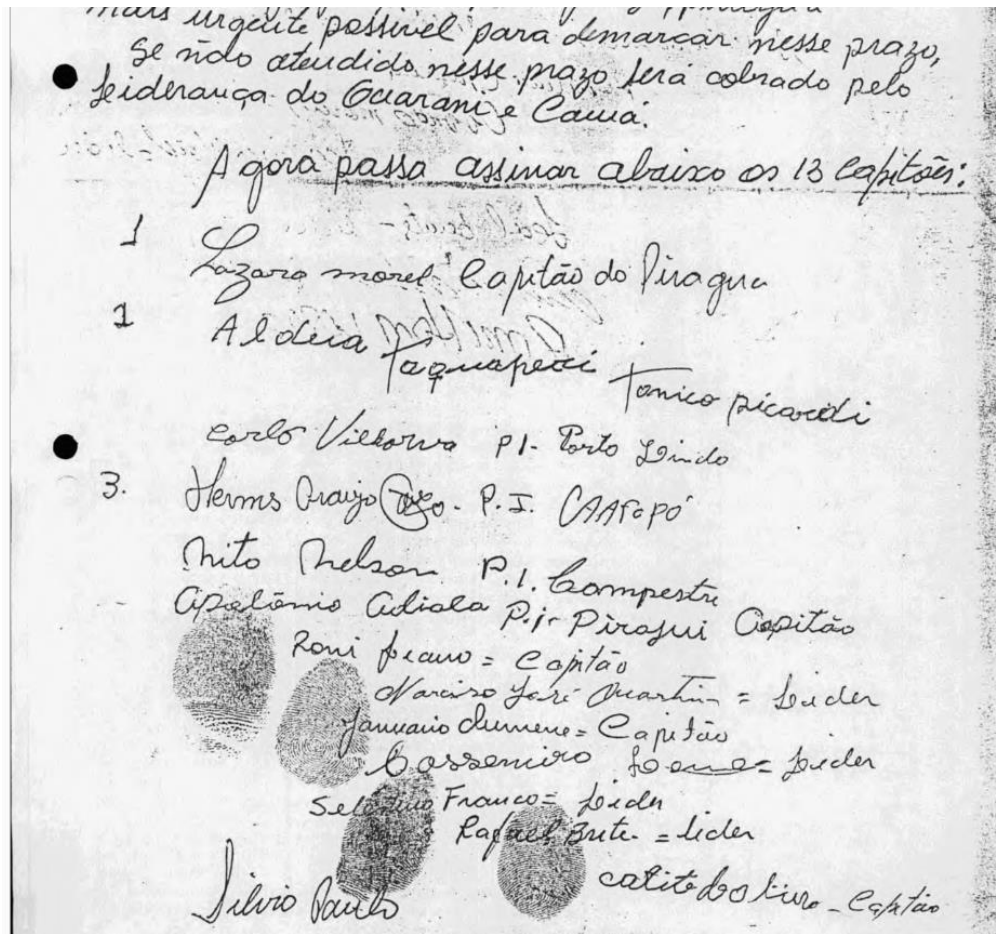 mais urgente possivel para demarcar nesse prazo,
se não atendido nesse prazo será cobrado pelo
Liderança do Guarani e Caiuá.
Agora passa assinar abaixo os 13 Capitões:
1 Lazaro morel Capitão do Piragua
1 Aldeia Taquaperi Tonico
Carlo Villarva P.I. Porto Lindo
3. Herms Araujo P.I. CAArapó
Nito Nelson P.I. Campestre
Apolônio P.I. Pirajui Capitão
Roni = Capitão
Narciso José Martin = Lider
Januario = Capitão
Cassemiro = Lider
Franco = Lider
Rafael Brite = lider
catite = Capitão
Silvio Paulo